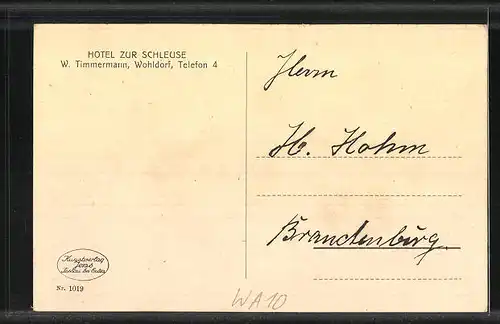 HOTEL ZUR SCHLEUSE
W. Timmermann, Wohldorf, Telefon 4
Herrn
H. Hohm
Brandenburg
Kunstverlag
Nr. 1019
WA10